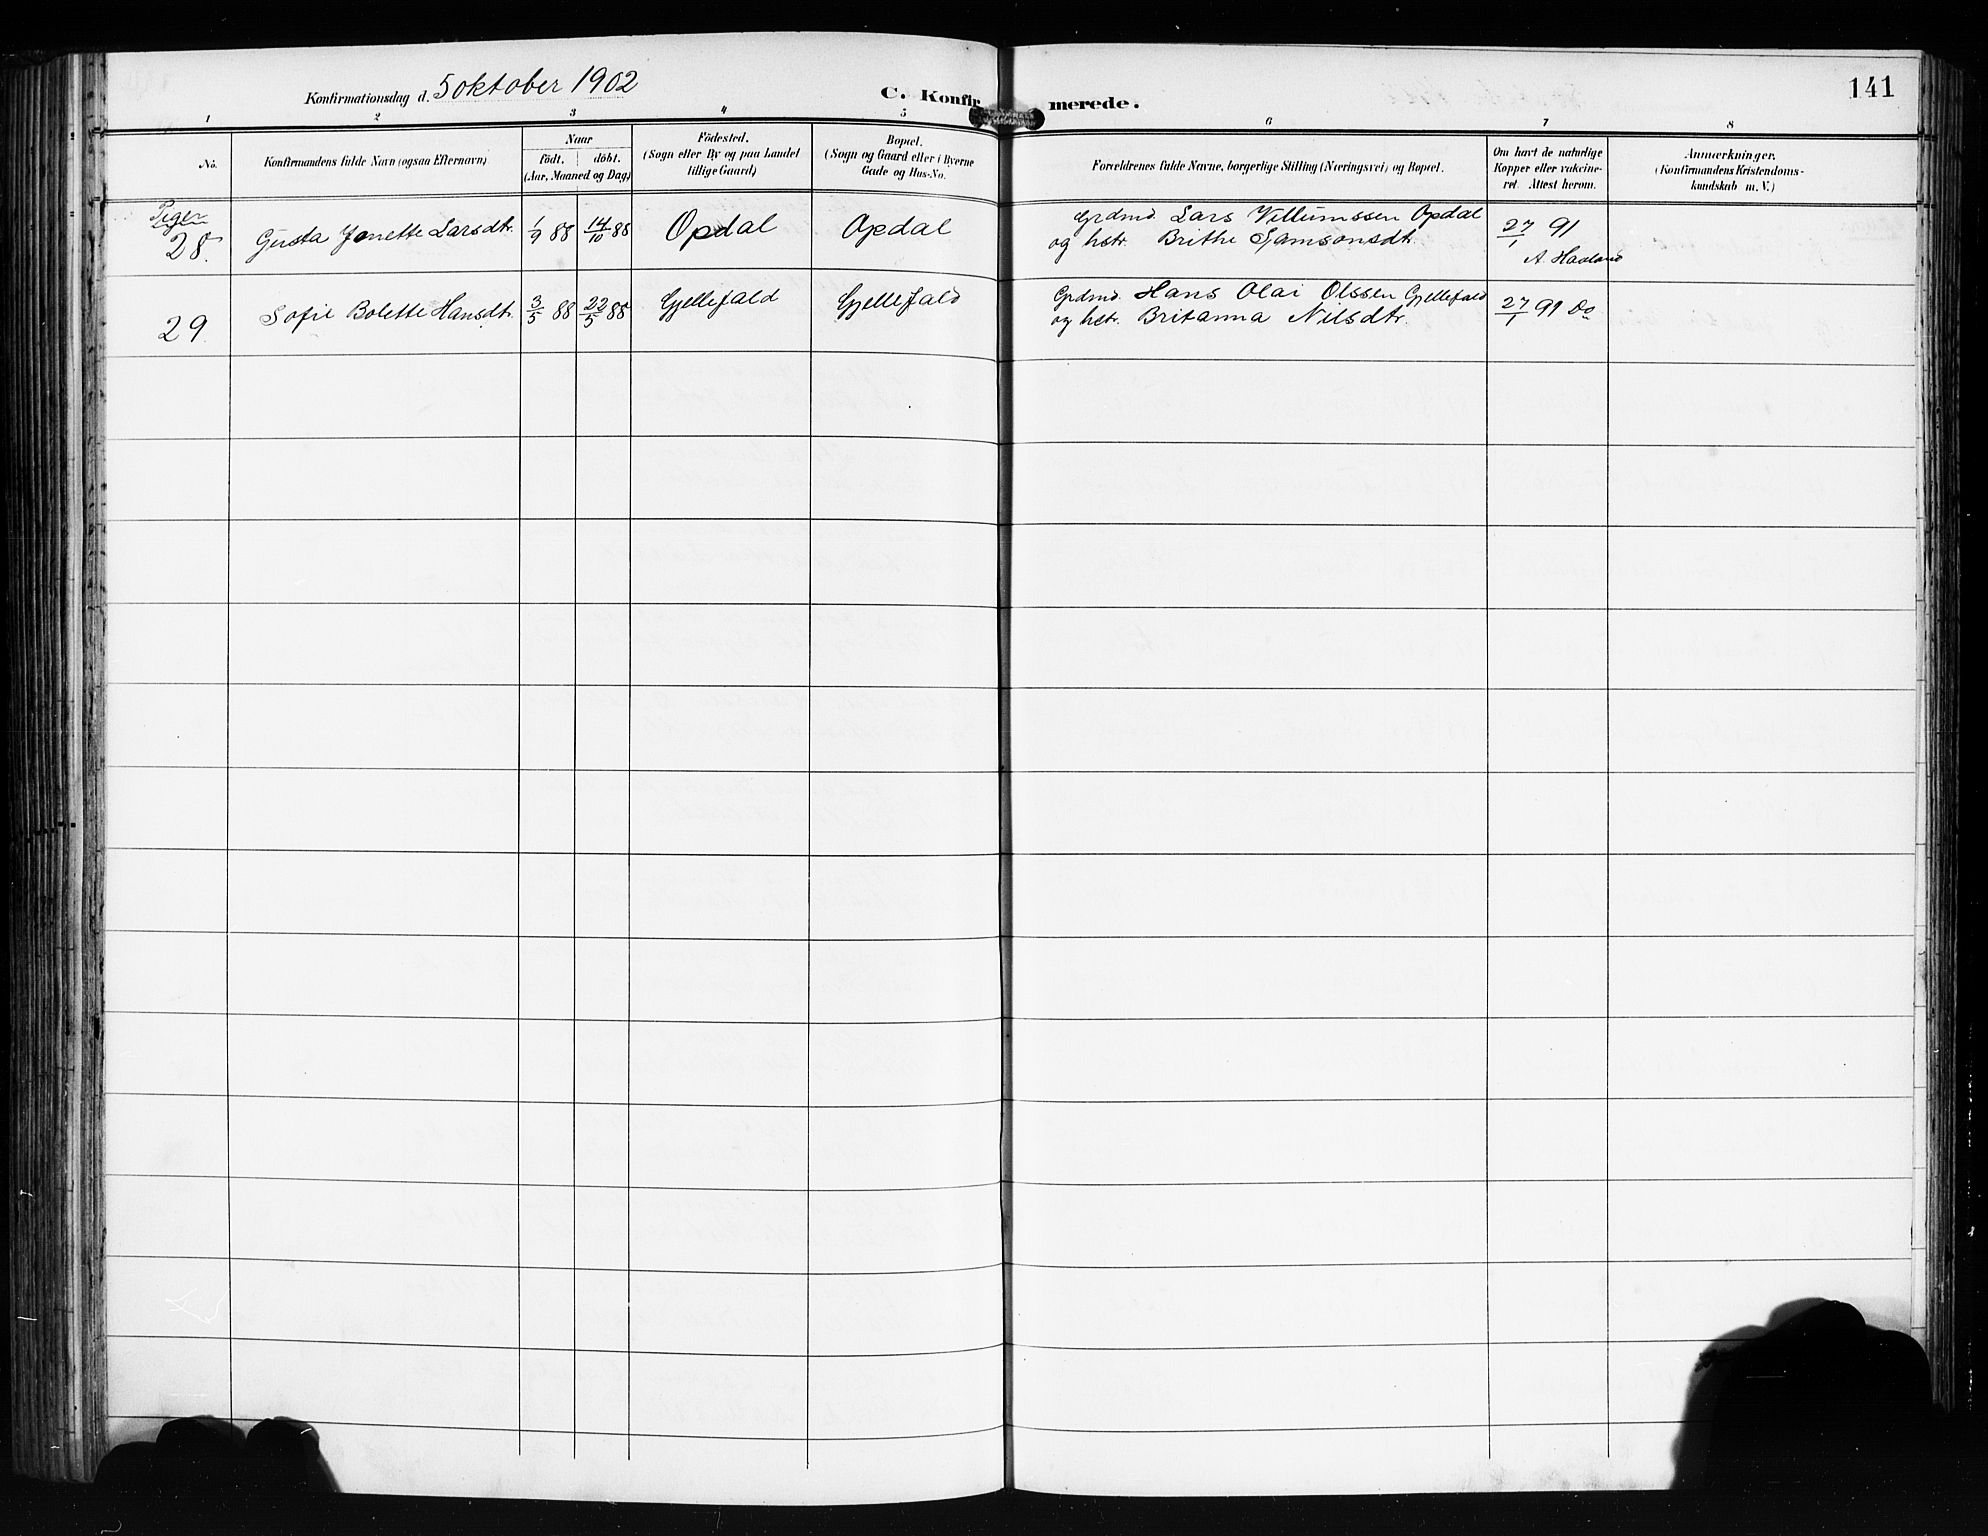 Konfirmationsdag d. 5 oktober 1902
C. Konfirmerede.
141
1 2 3 4 5 6 7 8
No.
Konfirmandens fulde Navn (ogsaa Efternavn)
Naar
født. døbt.
(Aar, Maaned og Dag)
Fødested.
(Sogn eller By og paa Landet
tillige Gaard)
Bopæl.
(Sogn og Gaard eller i Byerne
Gade og Hus-No.
Forældrenes fulde Navne, borgerlige Stilling (Næringsvei) og Bopæl.
Om havt de naturlige
Kopper eller vakcine-
ret. Attest herom.
Anmærkninger.
(Konfirmandens Kristendoms-
kundskab m. V.)
Piger
28. Gusta Jonette Larsdtr. 1/9 88 14/10 88 Opdal Opdal Grdmd. Lars Villumssen Opdal 27/1 91
og hstr. Brithe Samsonsdtr. A. Haaland
29. Sofie Bolette Hansdtr. 3/5 88 22/5 88 Gjellefald Gjellefald Grdmd. Hans Olai Olssen Gjellefald 27/1 91 Do
og hstr. Britanna Nilsdtr.